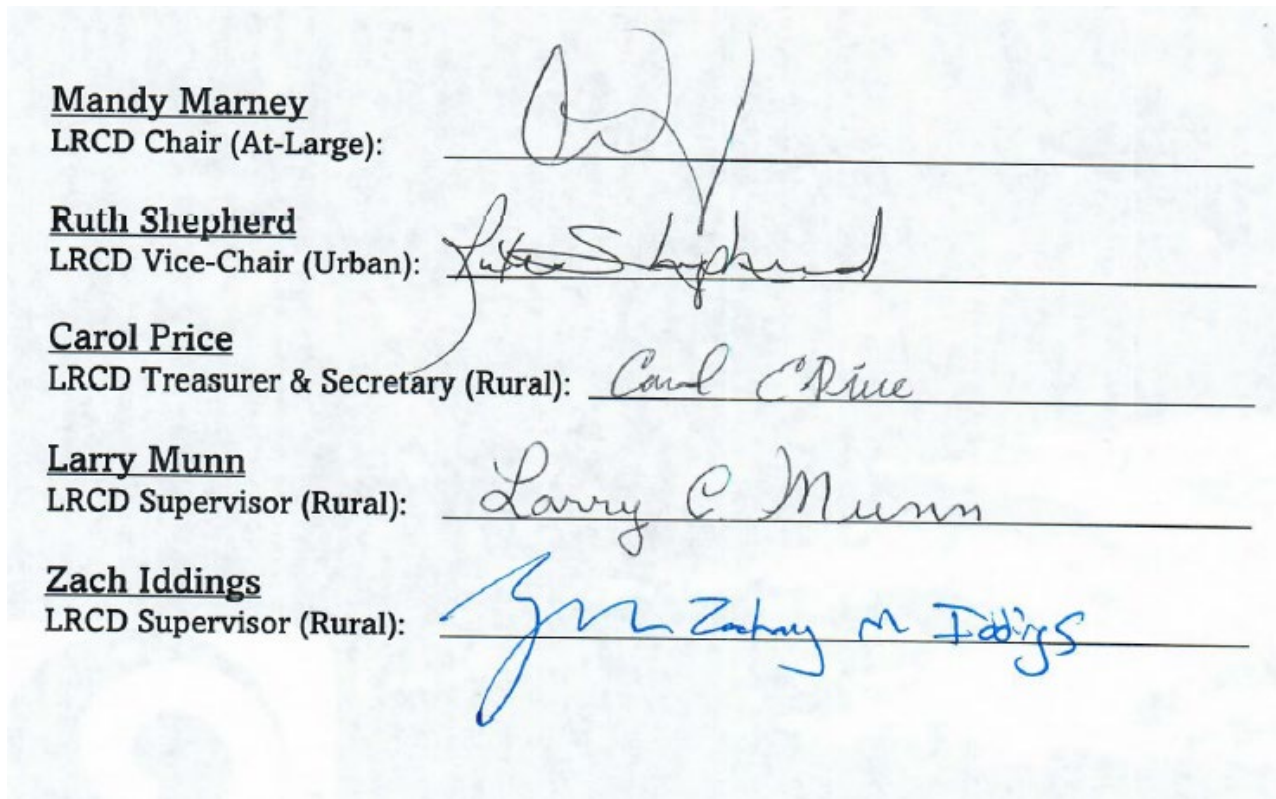 Mandy Marney
LRCD Chair (At-Large):
Ruth Shepherd
LRCD Vice-Chair (Urban): Ruth Shepherd
Carol Price
LRCD Treasurer & Secretary (Rural): Carol E Price
Larry Munn
LRCD Supervisor (Rural): Larry C. Munn
Zach Iddings
LRCD Supervisor (Rural): Zachary M Iddings